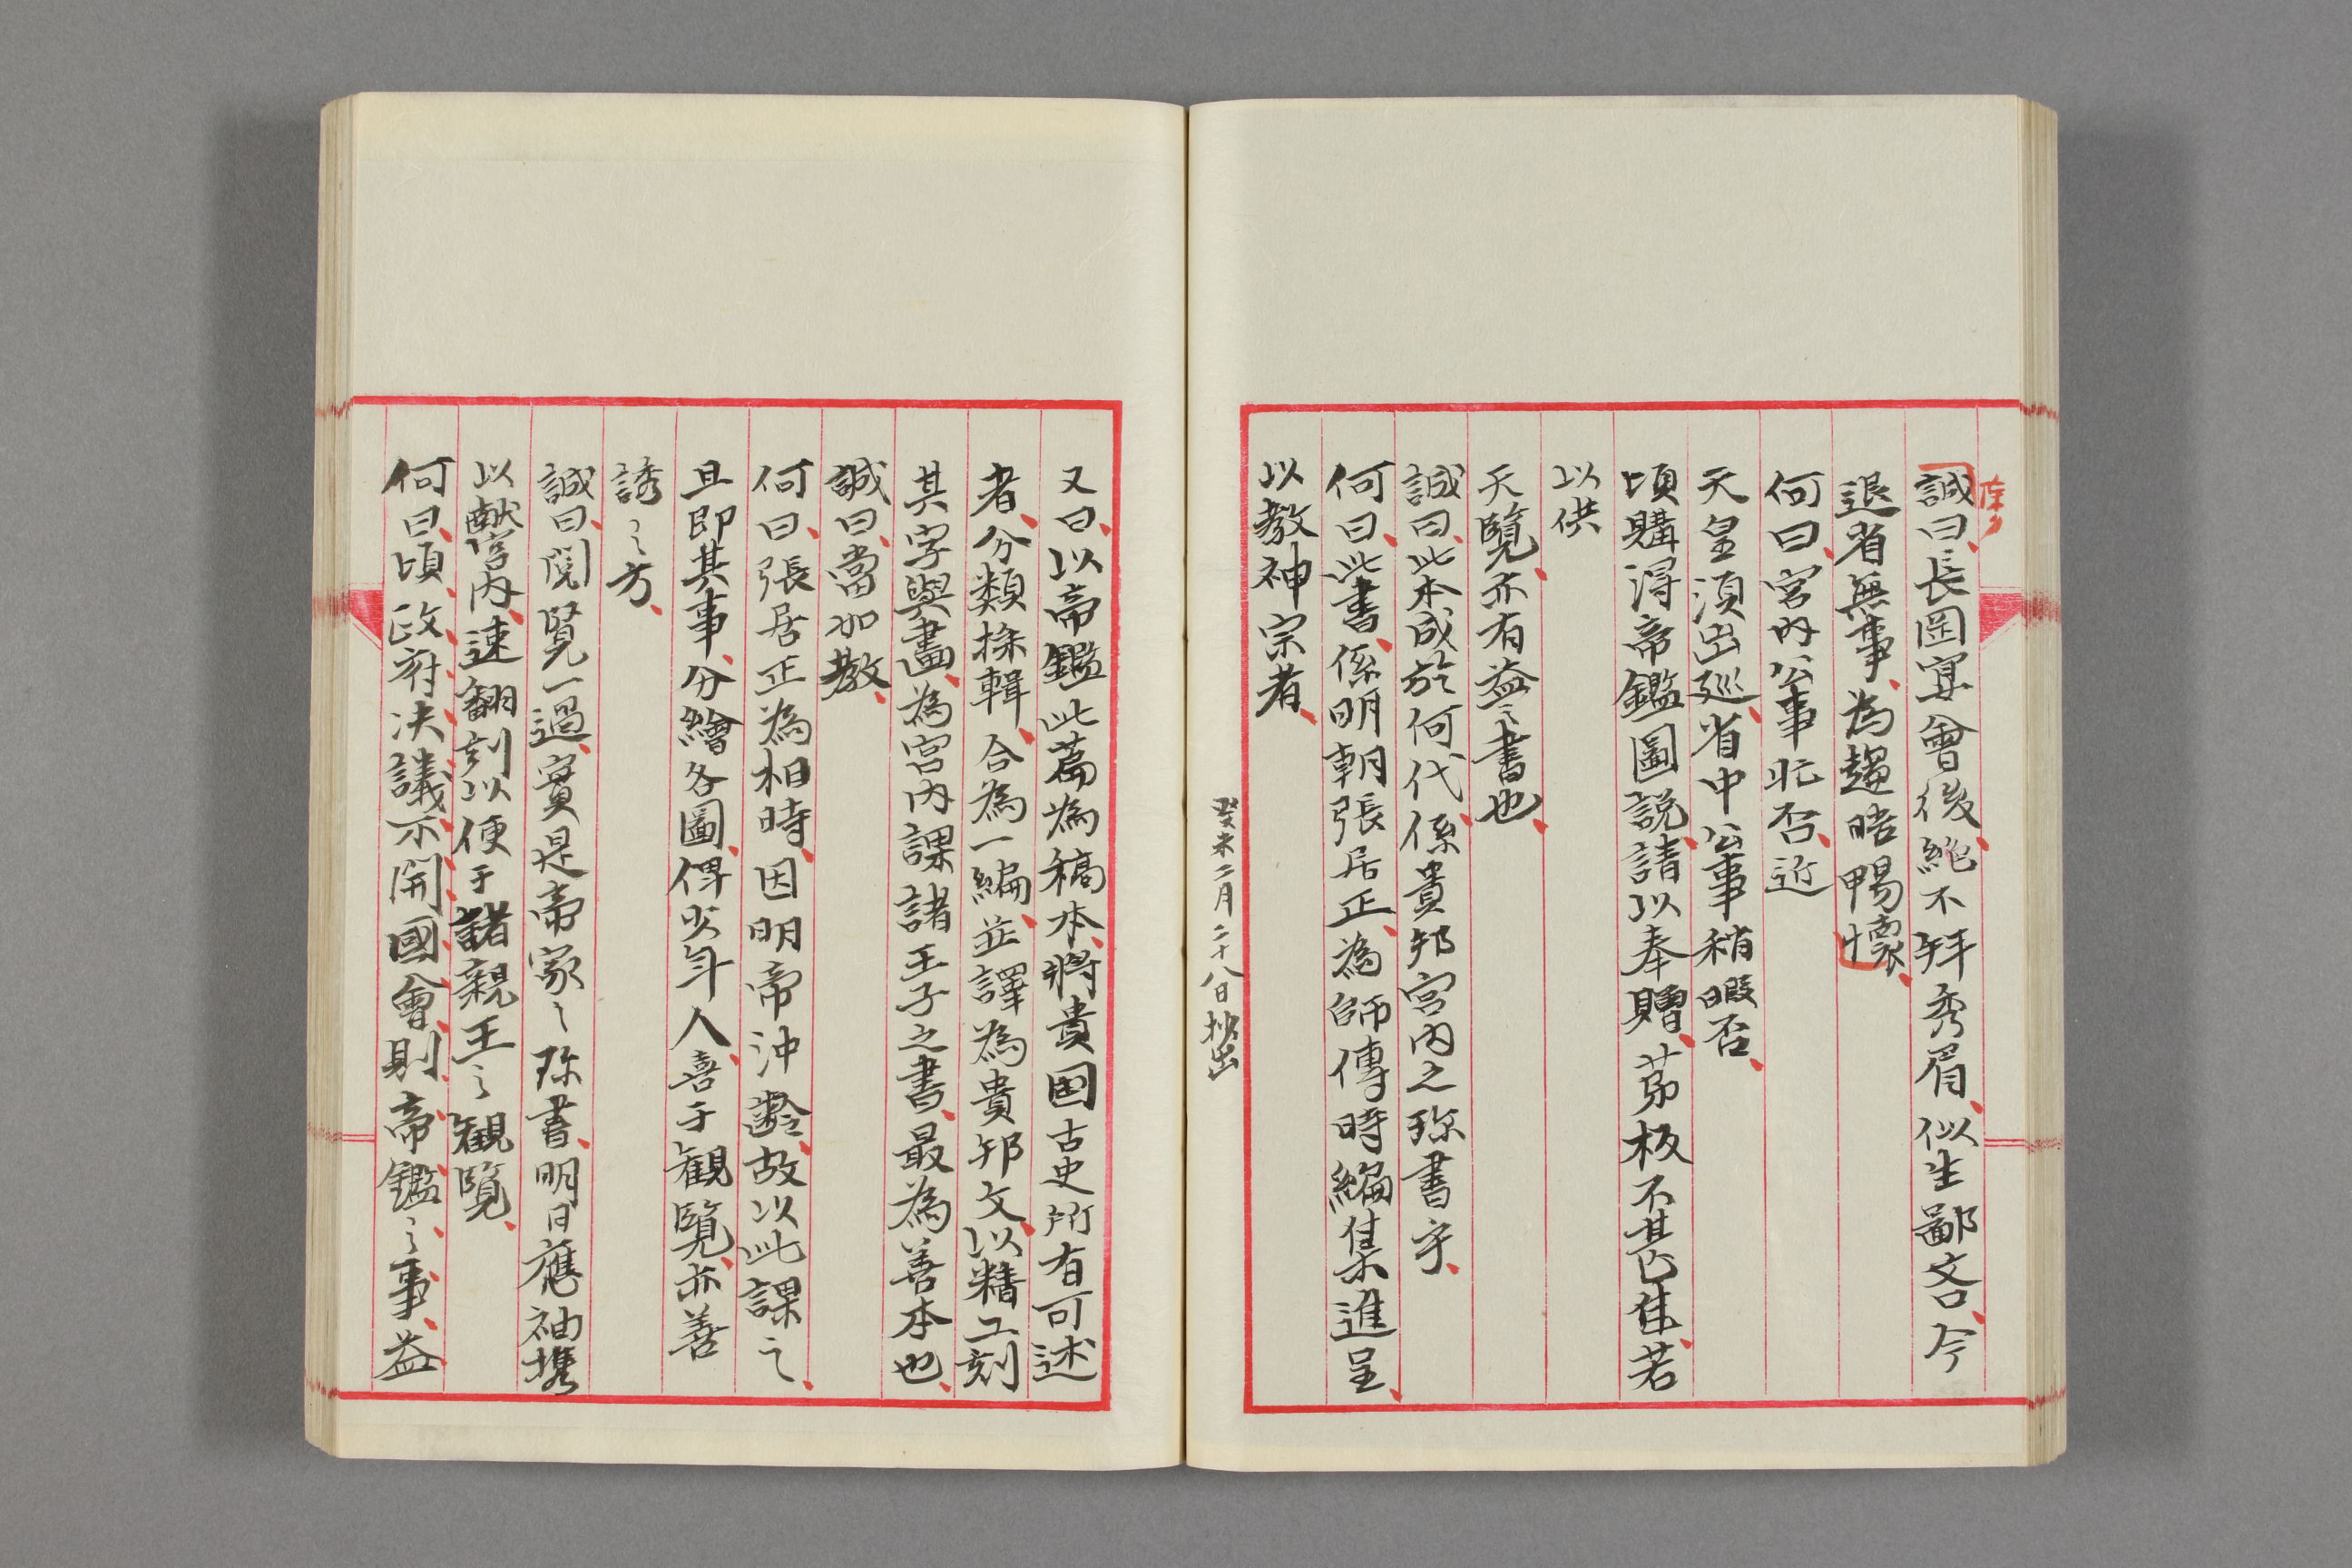 誠曰、長岡宴會後、絶不拜秀眉、似生鄙吝、今
退省無事、為趨晤暢懷、
何曰、宮內公事忙否、近
天皇須出巡、省中公事稍暇否、
頃購得帝鑑圖說、請以奉贈、茅板不甚佳、若
以供
天覽、亦有益之書也、
誠曰、此本成於何代、係貴邦宮內之珎書乎、
何曰、此書、係明朝張居正、為師傅時編集進呈、
以教神宗者、
癸未二月二十八日抄出
又曰、以帝鑑此篇為稿本、將貴国古史所有可述
者、分類採輯、合為一編、並譯為貴邦文、以精工刻
其字與畫、為宮內課諸王子之書、最為善本也、
誠曰、當如教、
何曰、張居正為相時、因明帝沖齡、故以此課之、
且即其事、分繪各圖、俾少年人喜于觀覽、亦善
誘之方、
誠曰、閱覽一過、實是帝家之珎書、明日應袖携
以献宮內、速翻刻以便于諸親王之觀覽、
何曰、頃、政府决議不開國會、則帝鑑之事、益